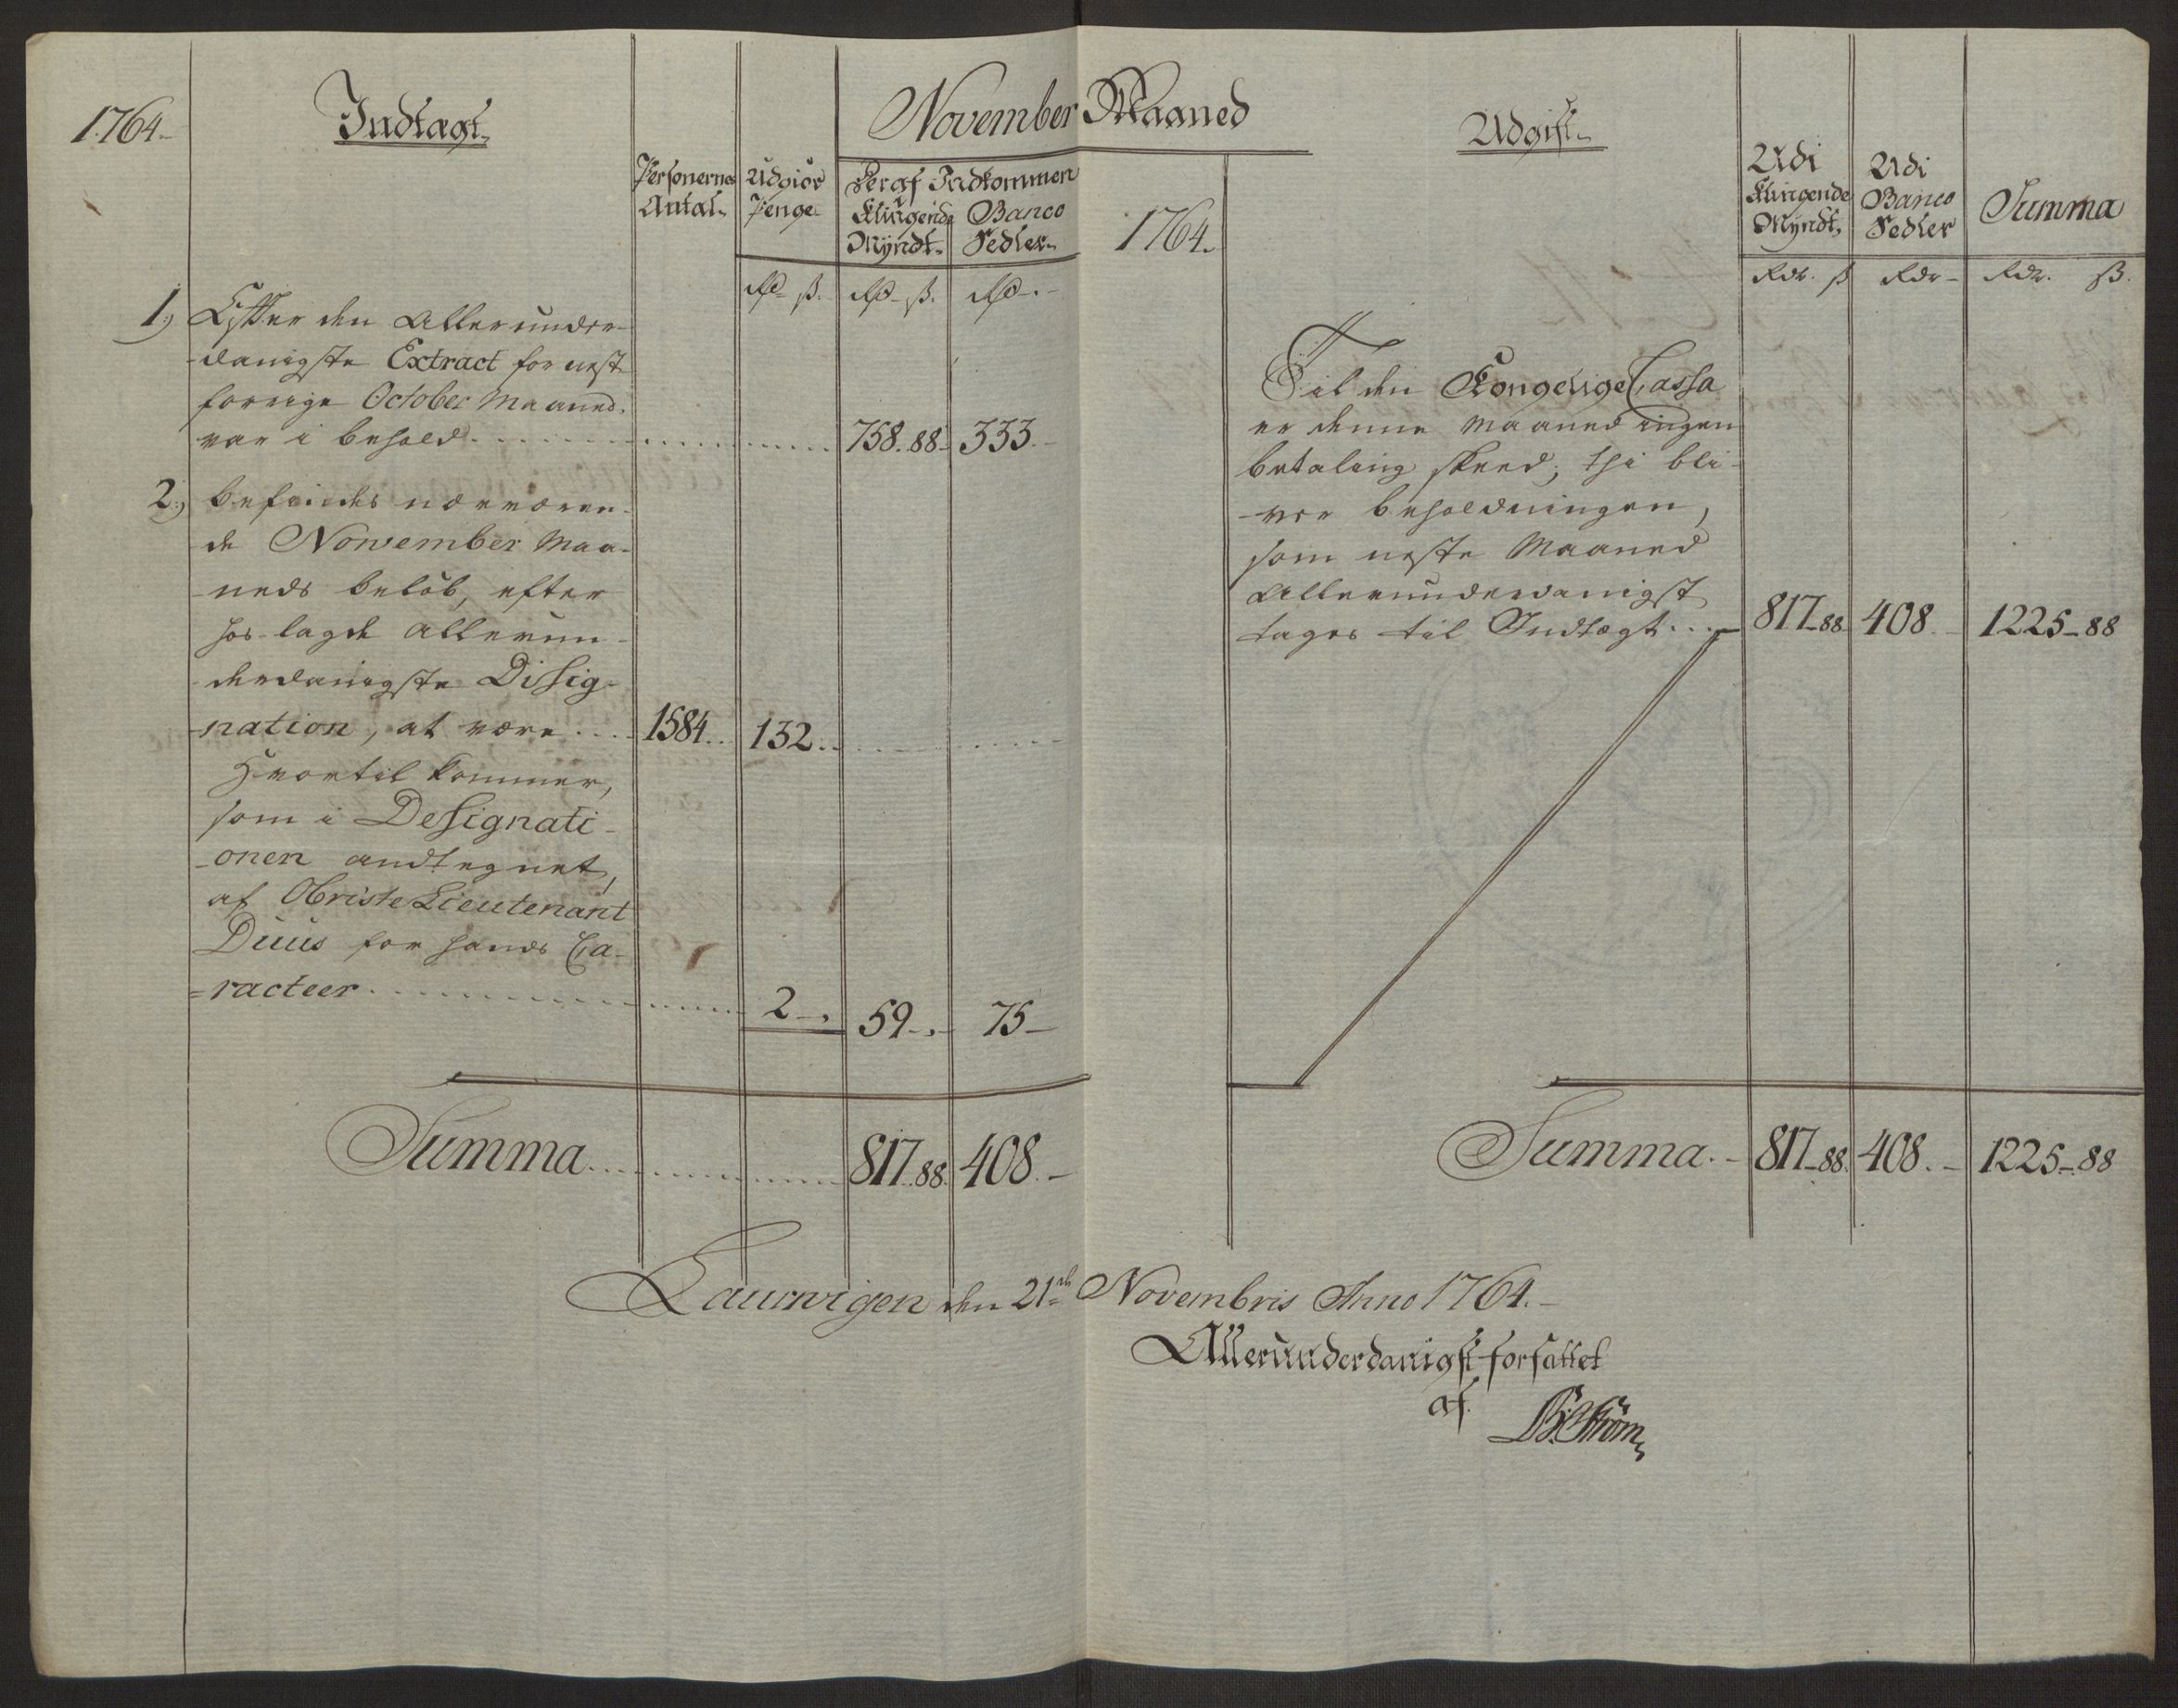 November Maaned
1764.
Indtægt.
Personernes Antal.
Udgiør Penge
Deraf Indkommen
Klingende Myndt.
Banco Sedler.
Rd. ß. Rd. ß. Rd.
1.) Efter den Allerunder-
danigste Extract for nest
forrige October Maaned.
var i behold . . . . 758. 88. 333.
2.) befindes nærværen-
de Nowember Maa-
neds beløb, efter
hos-lagde allerun-
derdanigste Dissig-
nation, at være .... 1584.. 132..
Hvortil kommer,
som i Designati-
onen andtegnet,
af Obriste Lieutenant
Duus for hands Ca-
racteer . . . . 2 59 75
Summa . . . . 817. 88. 408.
1764.
Udgift.
Udi Klingende Myndt.
Udi Banco Sedler
Summa
Rdr. ß Rdr Rdr. ß.
Til den Kongelige Cassa
er denne Maaned ingen
betaling skeed; thi bli-
ver beholdningen,
som neste Maaned
Allerunderdanigst
tages til Indtægt... 817. 88. 408. 1225. 88
Summa. 817. 88. 408. 1225. 88
Laurwigen den 21de Novembris Anno 1764.
Allerunderdanigst forfattet
af.